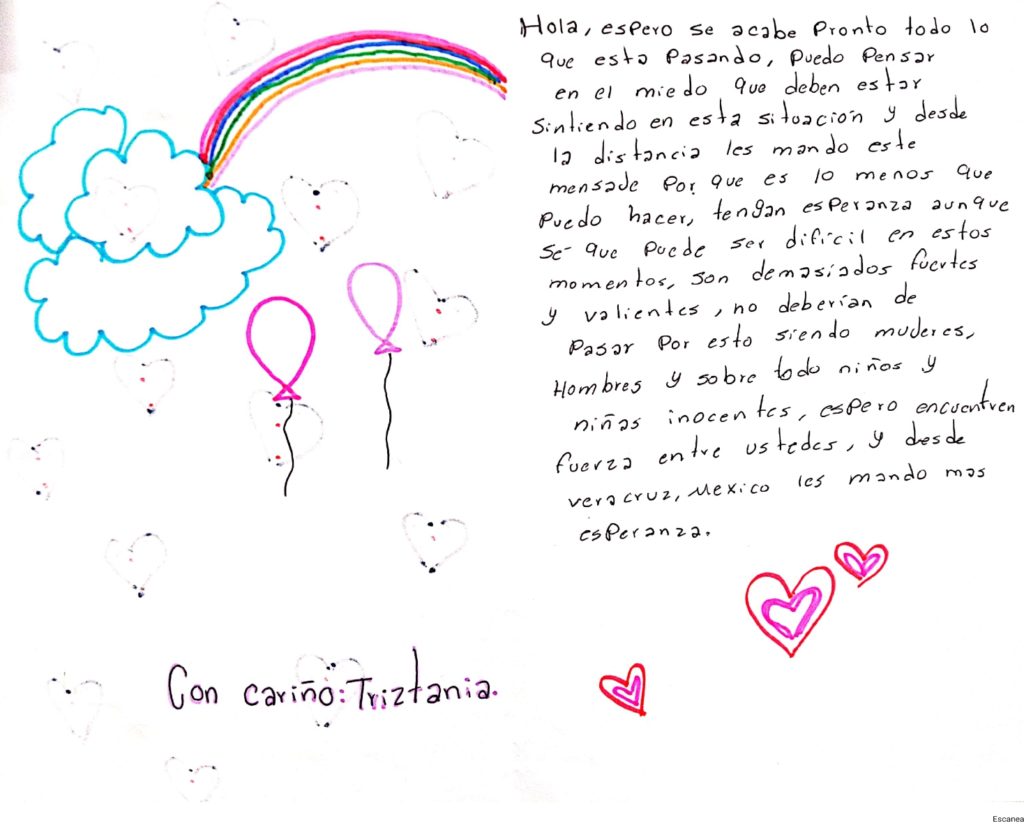 Hola, espero se acabe pronto todo lo
que esta pasando, puedo pensar
en el miedo que deben estar
sintiendo en esta situación y desde
la distancia les mando este
mensade por que es lo menos que
puedo hacer, tengan esperanza aunque
se que puede ser difícil en estos
momentos, son demasiados fuertes
y valientes, no deberían de
pasar por esto siendo muderes,
Hombres y sobre todo niños y
niñas inocentes, espero encuentren
fuerza entre ustedes, y desde
veracruz, Mexico les mando mas
esperanza.
Con cariño: Triztania.
Escanea